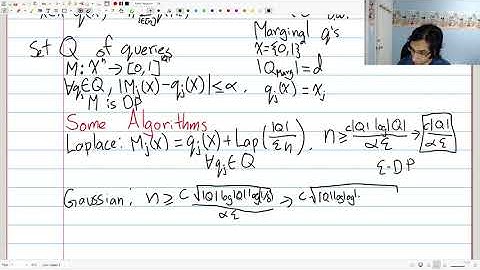 Set Q of queries
M: Xⁿ → [0,1]^|Q|
∀qⱼ∈Q, |Mⱼ(X) - qⱼ(X)| ≤ α.
M is DP
Marginal q's
X = {0,1}ᵈ
|Q_Marg| = d
qⱼ(x) = xⱼ
Some Algorithms
Laplace: Mⱼ(X) = qⱼ(X) + Lap(|Q|/(εn)), n ≥ c|Q| log|Q| / αε → c|Q| / αε
∀qⱼ∈Q
ε-DP
Gaussian: n ≥ c√(|Q| log|Q| log(1/δ)) / αε → c√(|Q| log log